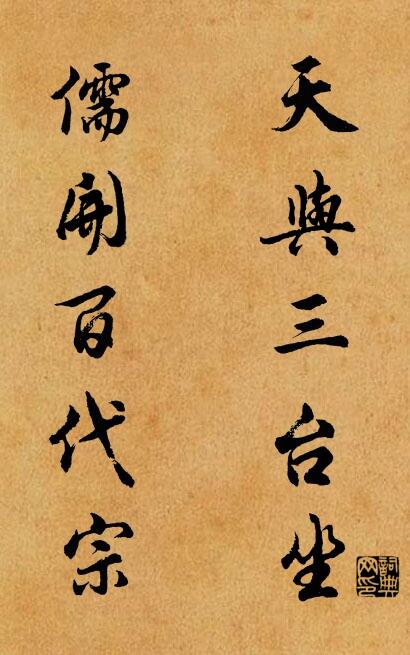 天與三台坐
儒開百代宗
詞典網印